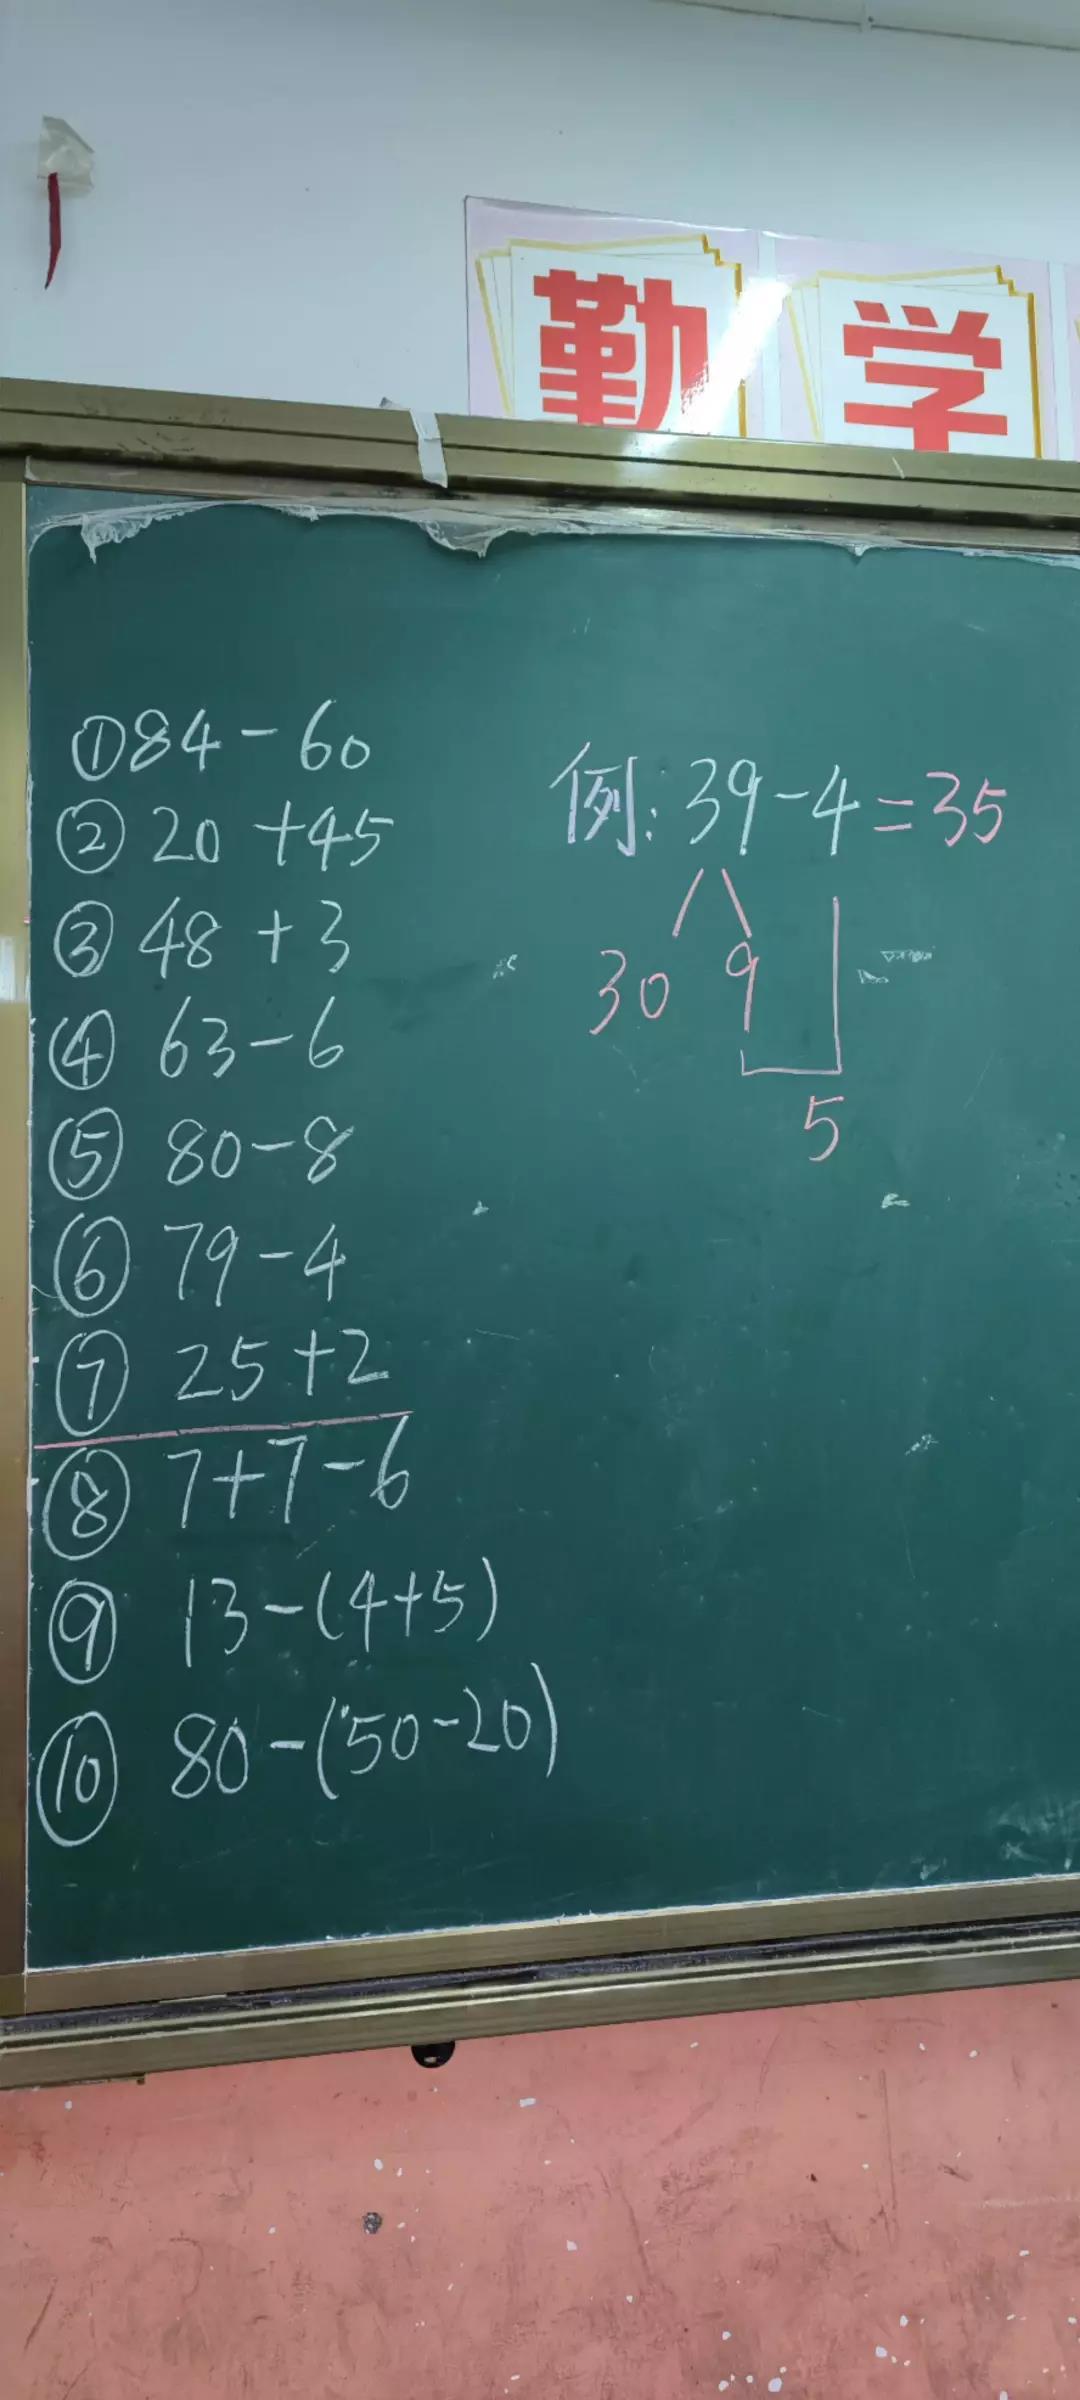 勤学
①84-60
②20+45
③48+3
④63-6
⑤80-8
⑥79-4
⑦25+2
⑧7+7-6
⑨13-(4+5)
⑩80-(50-20)
例:39-4=35
30 9
5